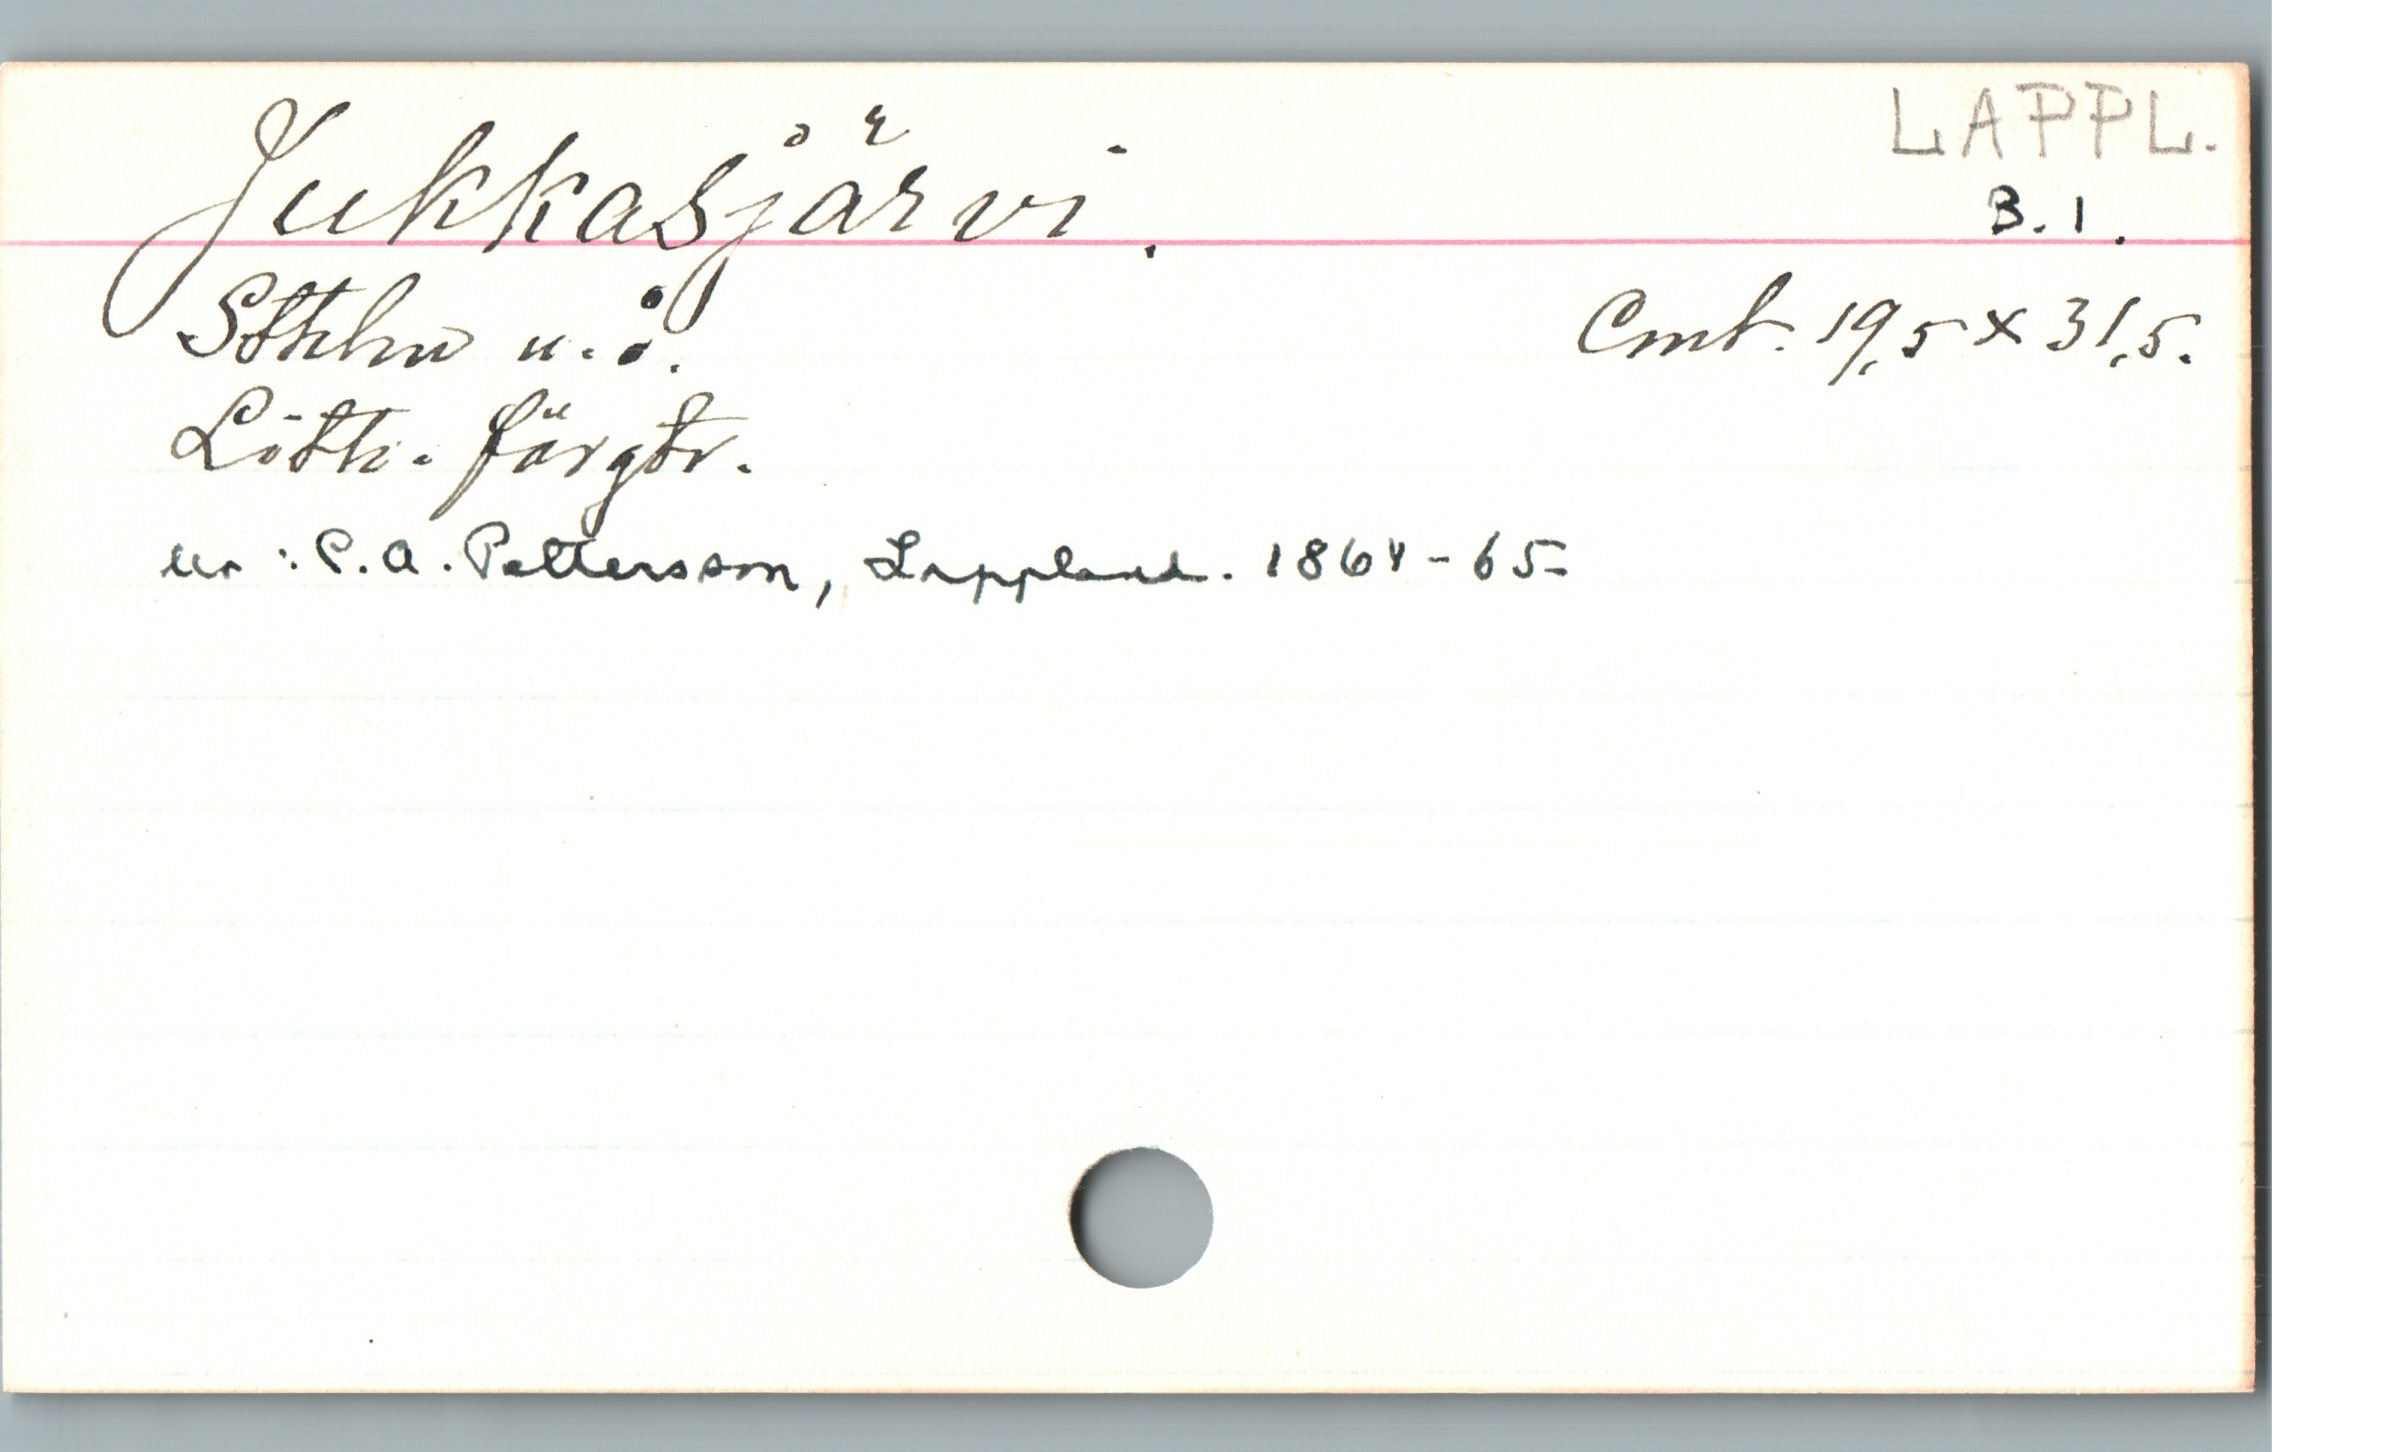 LAPPL.
Jukkasjärvi.
B. 1.
Sthlm u. å.
Cmt. 19,5 x 31,5.
Lith. färgtr.
ur : C. A. Pettersson, Lappland. 1864-65